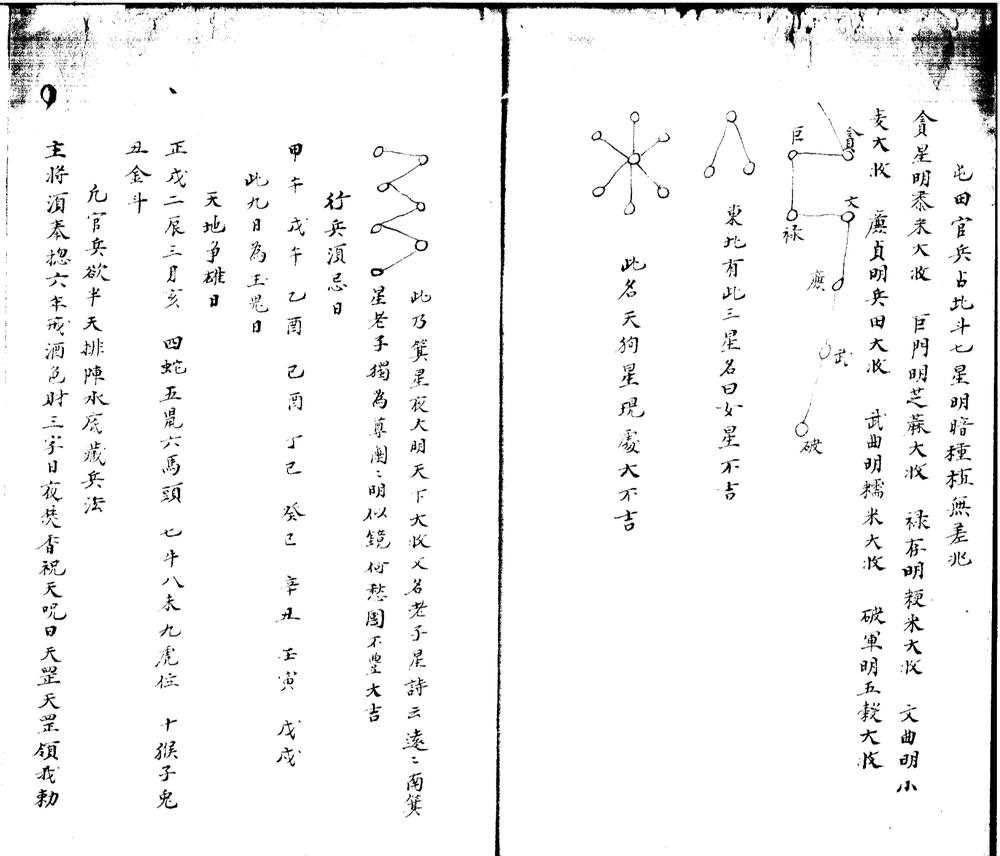 屯田官兵占北斗七星明暗種植無差兆
貪星明黍米大收　巨門明芝蔴大收　祿存明粳米大收　文曲明小
麦大收　廉貞明兵田大收　武曲明糯米大收　破軍明五穀大收
貪
巨
文
祿
廉
武
破
東北有此三星名曰女星不吉
此名天狗星現處大不吉
此乃箕星夜大明天下大收又名老子星詩云遠〻南箕
星老子獨為尊團〻明似鏡何愁國不豐大吉
行兵須忌日
甲午　戊午　乙酉　己酉　丁巳　癸巳　辛丑　壬寅　戊戌
此九日為玉鬼日
天地争雄日
正戌二辰三月亥　四蛇五鼠六馬頭　七牛八未九虎位　十猴子兔
丑金斗
凡官兵欲半天排陣水底藏兵法
主將須奉捴六年戒酒色財三字日夜焚香祝天呪曰天罡天罡領我勅